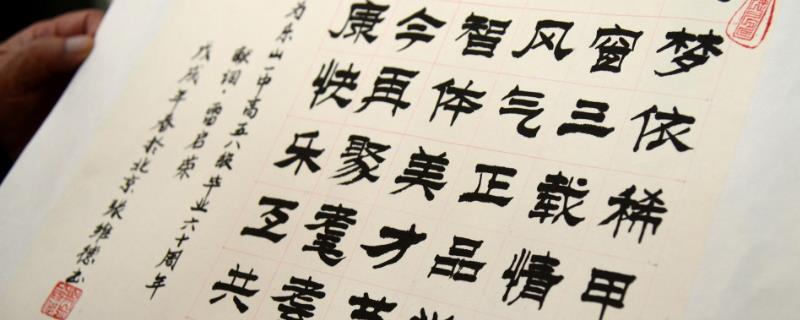 梦依稀甲
窗三载情
风气正品
智体美才
今再聚耄耋
康快乐互共
为东山一中高五八级毕业六十周年
献词·雷启荣
戊戌年春于北京张维德书